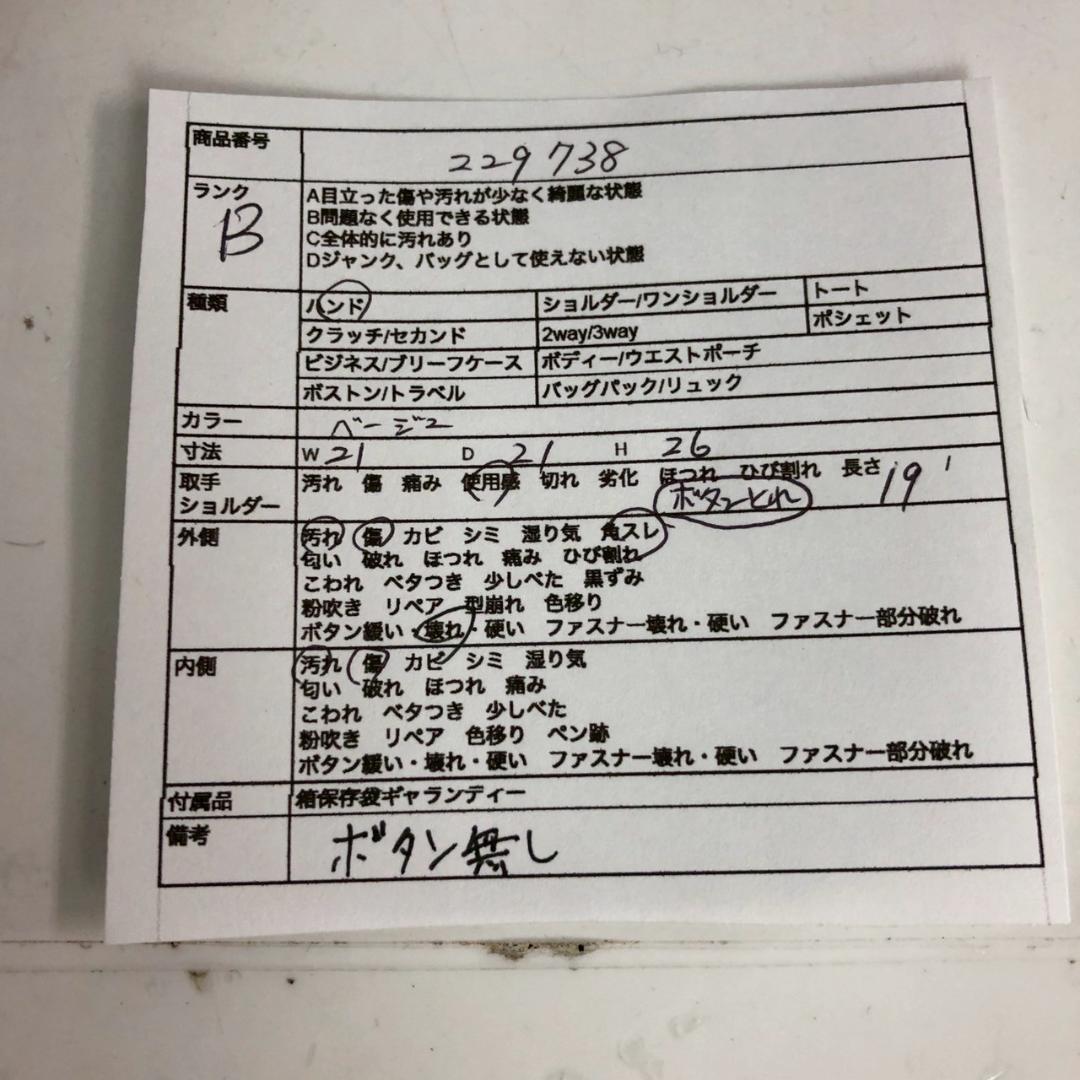 商品番号 229738
ランク B
A目立った傷や汚れが少なく綺麗な状態
B問題なく使用できる状態
C全体的に汚れあり
Dジャンク、バッグとして使えない状態
種類 ハンド ショルダー/ワンショルダー トート
クラッチ/セカンド 2way/3way ポシェット
ビジネス/ブリーフケース ボディー/ウエストポーチ
ボストン/トラベル バッグパック/リュック
カラー ベージュ
寸法 W 21 D 21 H 26
取手 汚れ 傷 痛み 使用感 切れ 劣化 ほつれ ひび割れ 長さ 19
ショルダー ボタンとれ
外側 汚れ 傷 カビ シミ 湿り気 角スレ
匂い 破れ ほつれ 痛み ひび割れ
こわれ ベタつき 少しべた 黒ずみ
粉吹き リペア 型崩れ 色移り
ボタン緩い・壊れ・硬い ファスナー壊れ・硬い ファスナー部分破れ
内側 汚れ 傷 カビ シミ 湿り気
匂い 破れ ほつれ 痛み
こわれ ベタつき 少しべた
粉吹き リペア 色移り ペン跡
ボタン緩い・壊れ・硬い ファスナー壊れ・硬い ファスナー部分破れ
付属品 箱保存袋ギャランディー
備考 ボタン無し